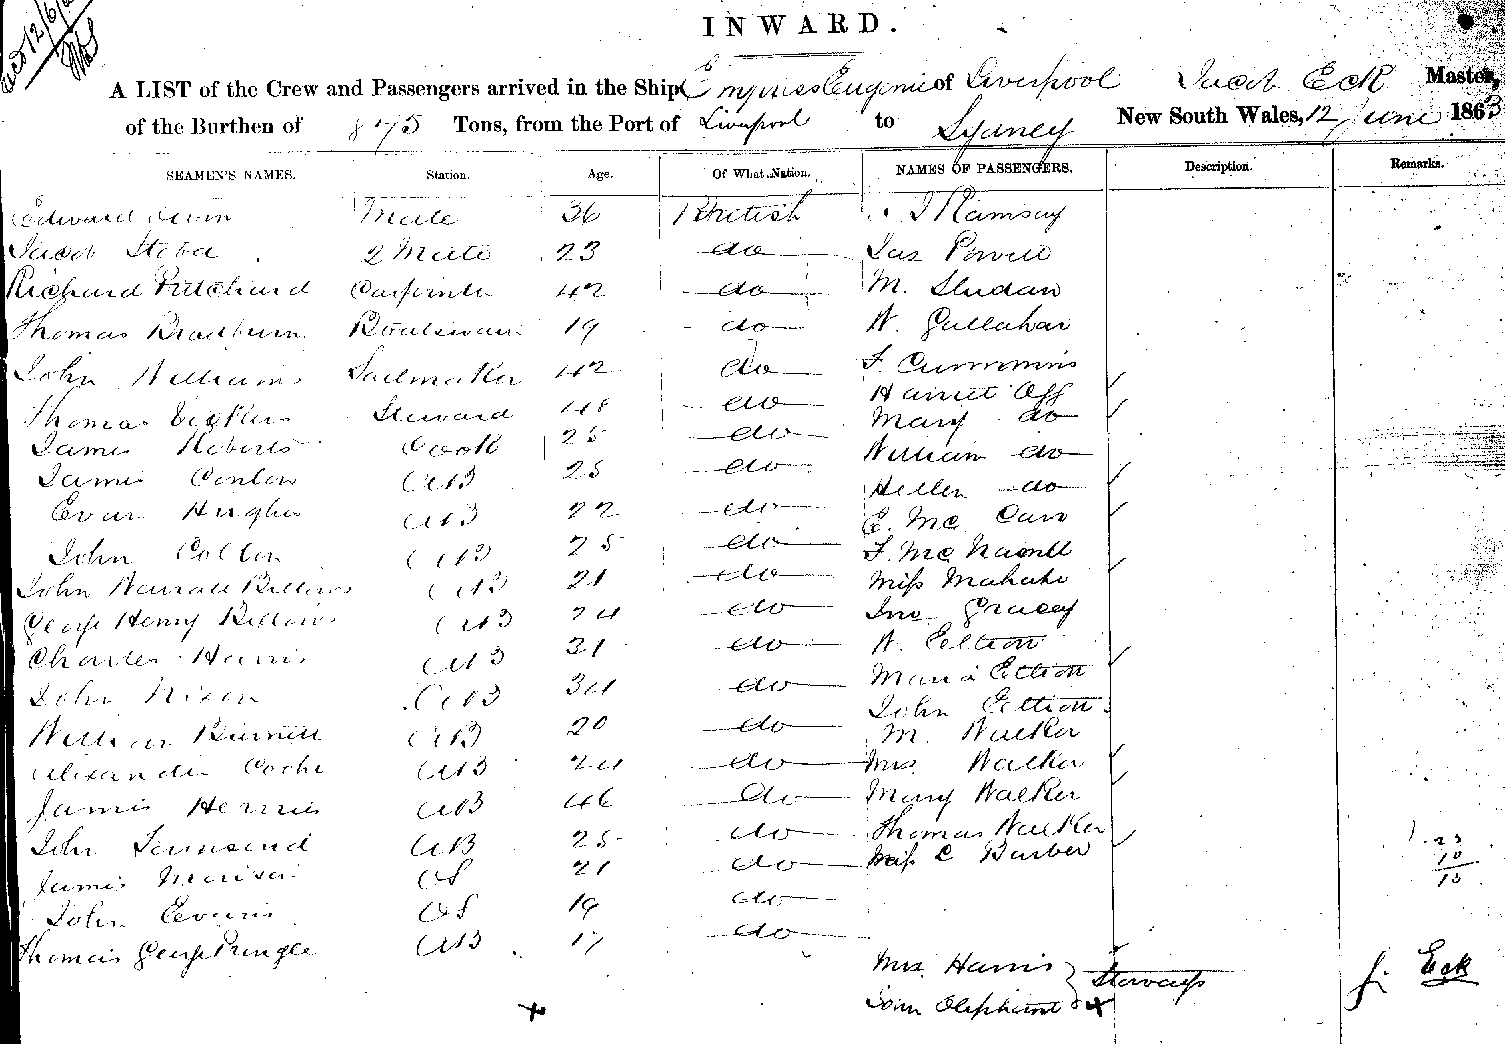 INWARD.
A LIST of the Crew and Passengers arrived in the Ship Empress Eugenie of Liverpool Jacob Eck Master,
of the Burthen of 875 Tons, from the Port of Liverpool to Sydney New South Wales, 12 June 1863
SEAMEN'S NAMES. Station. Age. Of What Nation. NAMES OF PASSENGERS. Description. Remarks.
Edward Mate 36 British Ramsay
Jacob 2 Mate 23 do Jas Powell
Richard Pritchard Carpenter 42 do M. Sludan
Thomas Bradburn Boatswain 19 do W. Gallahar
John Williams Sailmaker 42 do F. Cummins
Harriet Off
Thomas Steward 48 do Mary do
James Roberts Cook 25 do William do
James Conlon AB 25 do Hellen do
Evan Hughes AB 22 do E. Mc Caw
John Collen AB 25 do F. Mc
John Billows AB 21 do Miss
George Henry Billows AB 24 do Jno Gracey
Charles Harris AB 31 do W. Eltion
John Nixon AB 34 do Maria Eltion
John Eltion
William Burnett AB 20 do M. Walker
Alexander Cooke AB 24 do Mrs. Walker
James Herries AB 46 do Mary Walker
John Townsend AB 25 do Thomas Walker
James OS 21 do Miss C Barber
23
10
13
John Evans OS 19 do
Thomas George Pringle AB 17 do
Mrs. Harris
Stewardess
J. Eck
Oliphant